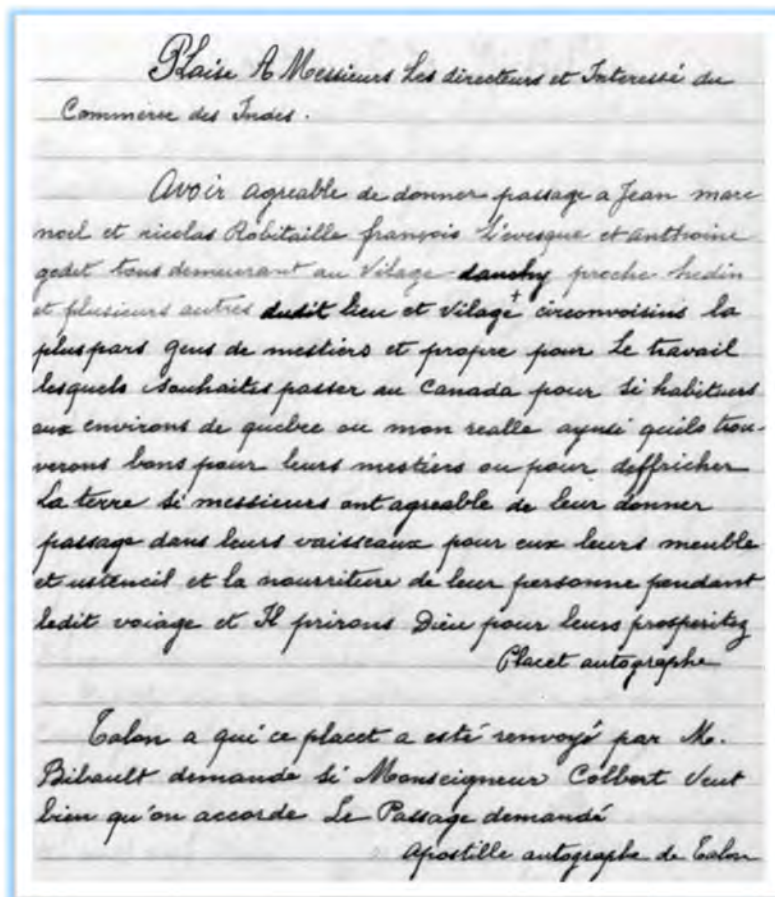 Plaise A Messieurs Les directeurs et Interessé du
Commerce des Indes.
Avoir agreable de donner passage a Jean marc
noel et nicolas Robitaille françois L'evesque et anthoine
gedet tous demeurant au vilage dauchy proche hedin
et plusieurs autres dudit lieu et vilage + circonvoisins la
plus pars gens de mestiers et propre pour Le travail
lesquels souhaites passer au Canada pour si habituers
aux environs de quebec ou mon realle aynsi quils trou-
verons bons pour leurs mestiers ou pour deffricher
La terre si messieurs ont agreable de leur donner
passage dans leurs vaisseaux pour eux leurs meuble
et ustencil et la nourriture de leur personne pendant
ledit voiage et Il prirons Dieu pour leurs prosperitez
Placet autographe
Talon a qui ce placet a esté renvoyé par M.
Bibault demande si Monseigneur Colbert Veut
bien qu'on accorde Le Passage demandé
Apostille autographe de Talon